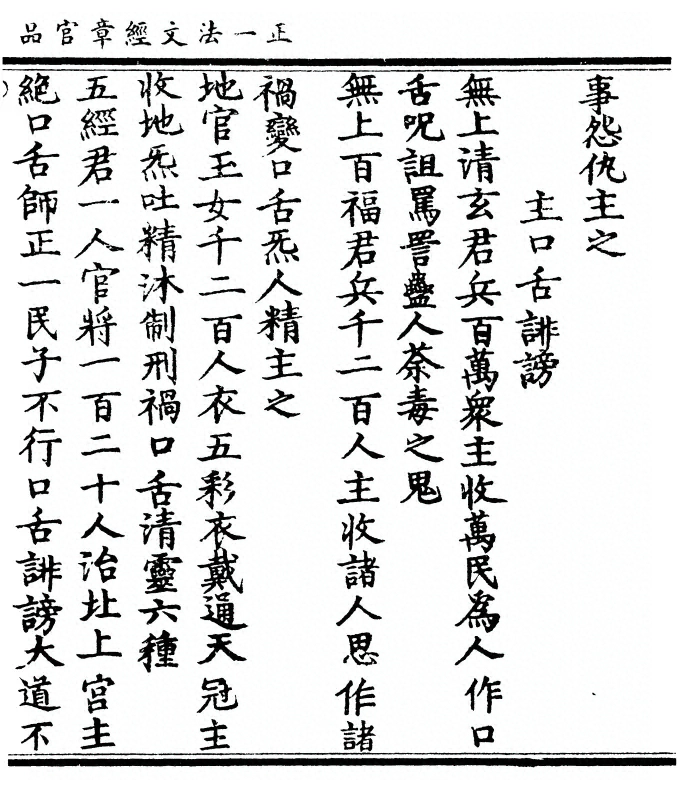 正一法文經章官品
事怨仇主之
主口舌誹謗
無上清玄君兵百萬衆主收萬民為人作口
舌呪詛罵詈蠱人荼毒之鬼
無上百福君兵千二百人主收諸人思作諸
禍變口舌炁人精主之
地官王女千二百人衣五彩衣戴通天冠主
收地炁吐精沐制刑禍口舌清靈六種
五經君一人官將一百二十人治丠上宮主
絕口舌師正一民子不行口舌誹謗大道不